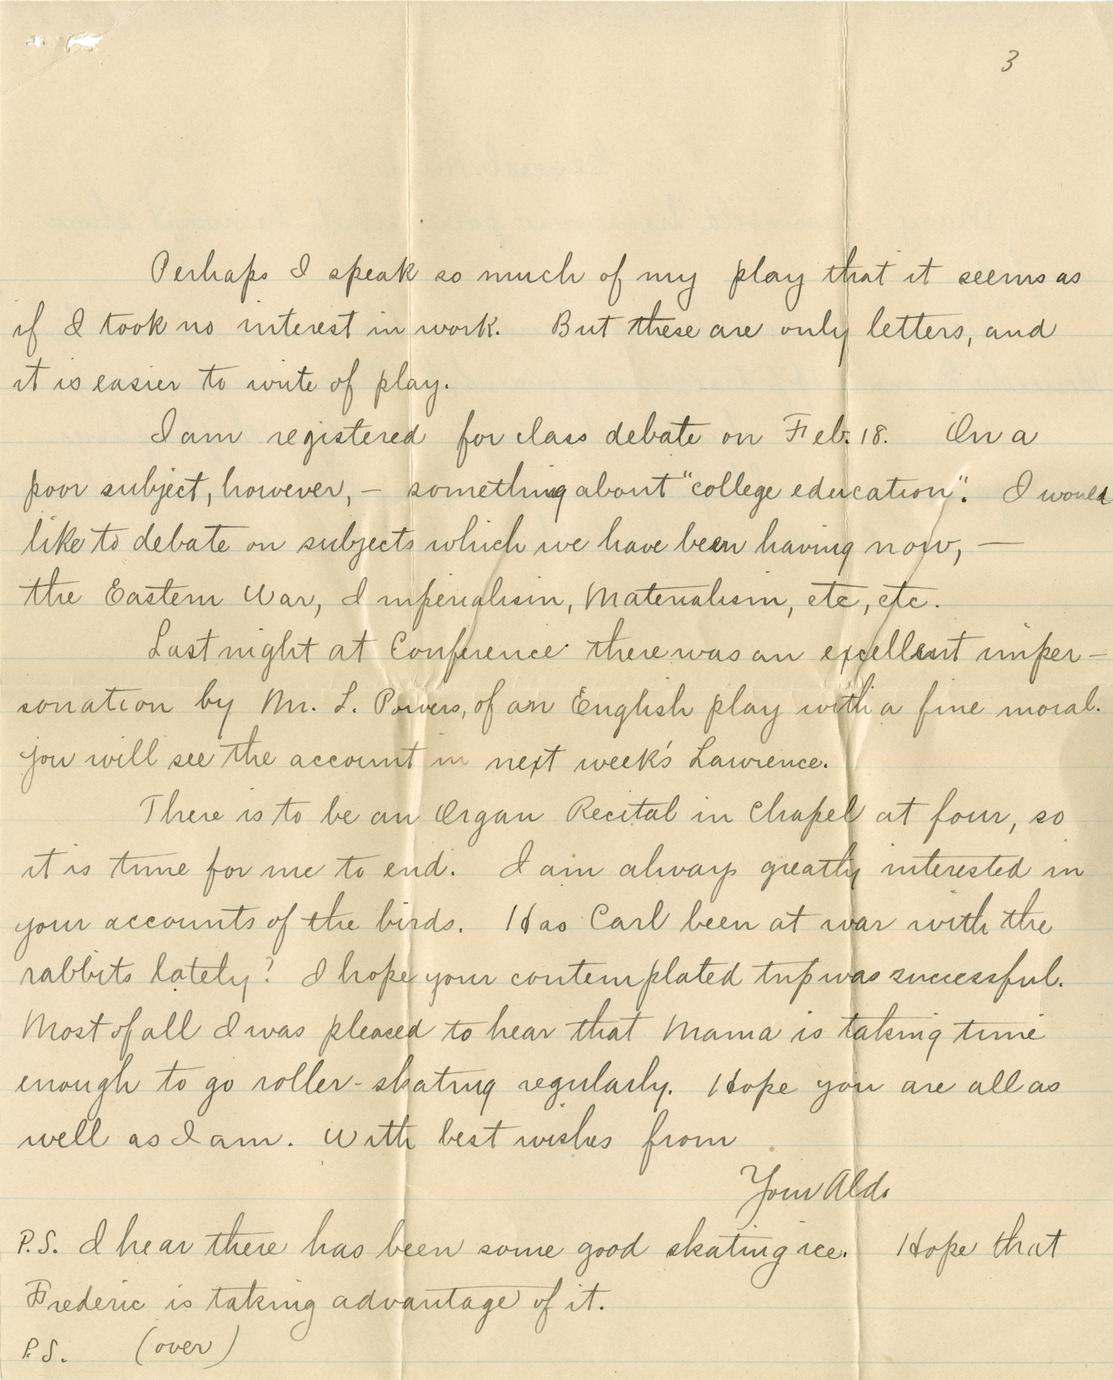 3
Perhaps I speak so much of my play that it seems as
if I took no interest in work. But these are only letters, and
it is easier to write of play.
I am registered for class debate on Feb. 18. On a
poor subject, however, — something about "college education". I would
like to debate on subjects which we have been having now, —
the Eastern War, Imperialism, Materialism, etc, etc.
Last night at Conference there was an excellent imper-
sonation by Mr. L. Powers, of an English play with a fine moral.
you will see the account in next week's Lawrence.
There is to be an Organ Recital in Chapel at four, so
it is time for me to end. I am always greatly interested in
your accounts of the birds. Has Carl been at war with the
rabbits lately? I hope your contemplated trip was successful.
Most of all I was pleased to hear that Mama is taking time
enough to go roller-skating regularly. Hope you are all as
well as I am. With best wishes from
Your Aldo
P.S. I hear there has been some good skating ice. Hope that
Frederic is taking advantage of it.
P.S. (over)